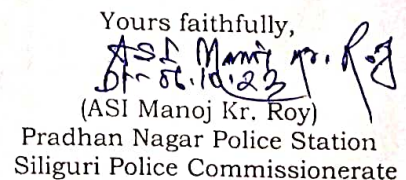 Yours faithfully,
ASI Manoj Kr. Roy
Dt- 06.10.23
(ASI Manoj Kr. Roy)
Pradhan Nagar Police Station
Siliguri Police Commissionerate